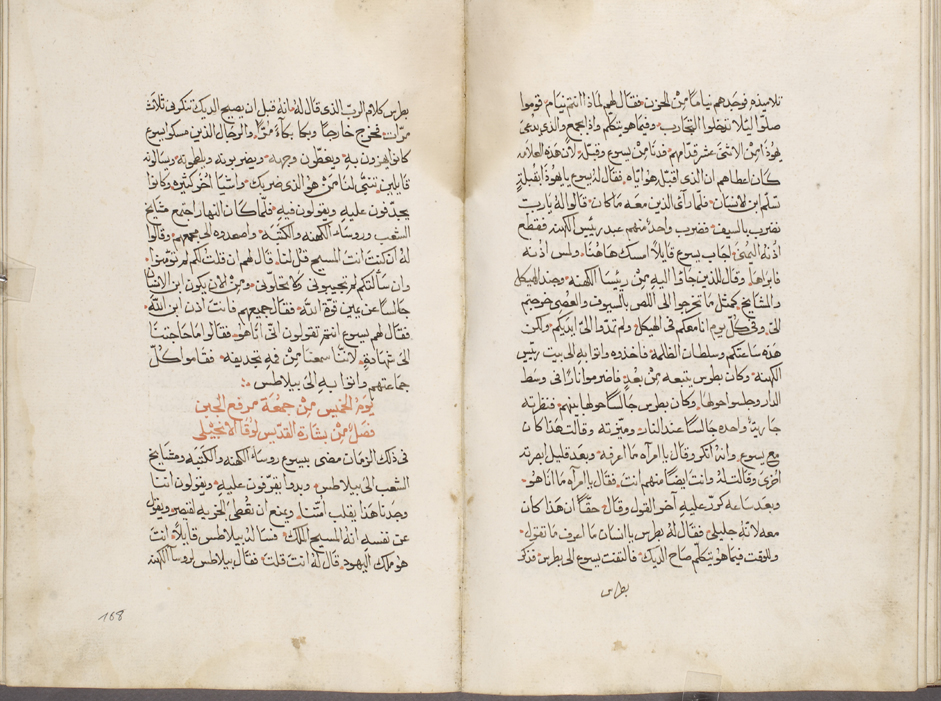 تلاميذه فوجدهم نيامًا من الحزن فقال لهم لماذا انتم نيام قوموا
صلّوا ليلا تدخلوا التجارب وفيما هو يتكلم واذا بجمع والذي يدعى
يهوذا من الاثنى عشر قدامهم فدنا من يسوع وقبّله لان هذه العلامه
كان اعطاهم ان الذي اقبّل هو اياه فقال له يسوع يا يهوذا ابقبلةٍ
تسلّم ابن الانسان فلما رأى الذين معه ما كان قالوا له يارب
نضرب بالسيف فضرب واحدٌ منهم عبد رئيس الكهنه فقطع
اذنه اليمنى اجاب يسوع قايلًا امسك هاهنا ولمس اذنه
فابراها وقال للذين جاؤا اليه من رؤسا الكهنه وجند الهيكل
والمشايخ كمثل ما تخرجوا الى اللص بالسيوف والعصي خرجتم
اليّ وفي كلّ يوم انا معكم في الهيكل ولم تمدّوا اليّ ايديكم ولكن
هذه ساعتكم وسلطان الظلمه فاخذوه واتوا به الى بيت رئيس
الكهنه وكان بطرس يتبعه من بُعدٍ فاضرموا نارًا في وسط
الدار وجلسوا حولها وكان بطرس جالسًا حولها بينهم فنظرته
جاريةٌ واحده جالسًا عند النار وميّزته وقالت هذا كان
مع يسوع وانه انكر وقال يا امرآه ما اعرفه وبعد قليل ابصرته
اخرى وقالت له وانت ايضًا منهم انت فقال يا امرآه ما انا هو
وبعد ساعه كرّر عليه آخر القول وقال حقًا ان هذا كان
معه لانه جليلي فقال له بطرس يا انسان ما اعرف ما تقول
وللوقت فيما هو يتكلّم صاح الديك فالتفت يسوع الى بطرس فذكر
بطرس
بطرس كلام الربّ الذي قال له انه قبل ان يصيح الديك تنكرني ثلاث
مرّات فخرج خارجًا وبكا بكآءً مُرًّا والرجال الذين مسكوا يسوع
كانوا يهزون به ويغطّون وجهه ويضربونه ويلطمونه ويسألونه
قايلين تنبّى لنا من هو الذي ضربك واشيا اخر كثيره وكانوا
يجدّفون عليه ويقولون فيه فلمّا كان النهار اجتمع مشايخ
الشعب وروسا الكهنه والكتبه واصعدوه الى مجمعهم وقالوا
له ان كنت انت المسيح قل لنا قال لهم ان قلت لكم لم تومنوا
وان سألتكم لم تجيبوني ولا تخلّوني ومن الان يكون ابن الانسان
جالسًا عن يمين قوة الله فقال جميعهم فانت اذن ابن الله
فقال لهم يسوع انتم تقولون انّي انا هو فقالوا ما حاجتنا
الى شهادةٍ لاننا سمعنا من فيه تجديفه فقاموا كلّ
جماعتهم واتوا به الى بيلاطس
يوم الخميس من جمعة مرفع الجبن
فصلٌ من بشارة القديس لوقا الانجيلي
في ذلك الزمان مضى بيسوع روسا الكهنه والكتبه ومشايخ
الشعب الى بيلاطس وبدوا يقرّفون عليه ويقولون اننا
وجدنا هذا يقلب امتنا ويمنع ان نُعطى الجزيه لقيصر ويقول
عن نفسه انه المسيح الملك فسأله بيلاطس قايلًا انت
هو ملك اليهود قال له انت قلت فقال بيلاطس لروسا الكهنه
168